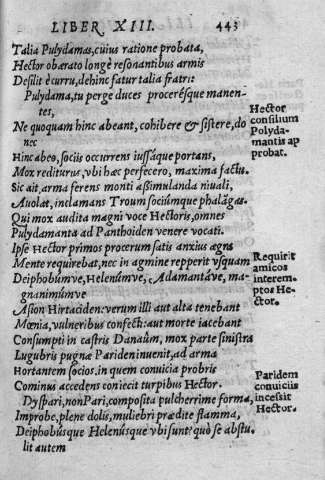 LIBER XIII. 443
Talia Pulydamas, cuius ratione probata,
Hector obærato longè resonantibus armis
Desilit è curru, dehinc fatur talia fratri:
Pulydama, tu perge duces procerésque manen-
tes,
Ne quoquam hinc abeant, cohibere & sistere, do
nec
Hinc abeo, sociis occurrens iussáque portans,
Mox rediturus, vbi hæc perfecero, maxima factu.
Sic ait, arma ferens monti assimulanda niuali,
Auolat, inclamans Troum sociûmque phalãgas.
Qui mox audita magni voce Hectoris, omnes
Pulydamanta ad Panthoiden venere vocati.
Ipse Hector primos procerum satis anxius agra
Mente requirebat, nec in agmine repperit vsquam
Deiphobúmve, Helenúmve, Adamantáve, ma-
gnanimúmve
Asion Hirtaciden: verùm illi aut alta tenebant
Mœnia, vulneribus confecti: aut morte iacebant
Consumpti in castris Danaûm, mox parte sinistra
Lugubris pugnæ Pariden inuenit, ad arma
Hortantem socios, in quem conuicia probris
Cominus accedens coniecit turpibus Hector.
Dyspari, non Pari, composita pulcherrime forma,
Improbe, plene dolis, muliebri prædite flamma,
Deiphobúsque Helenúsque vbi sunt? quò se abstu
lit autem
Hector
consilium
Polyda-
mantis ap
probat.
Requirit
amicos
interem-
ptos He-
ctor.
Paridem
conuiciis
incessit
Hector.